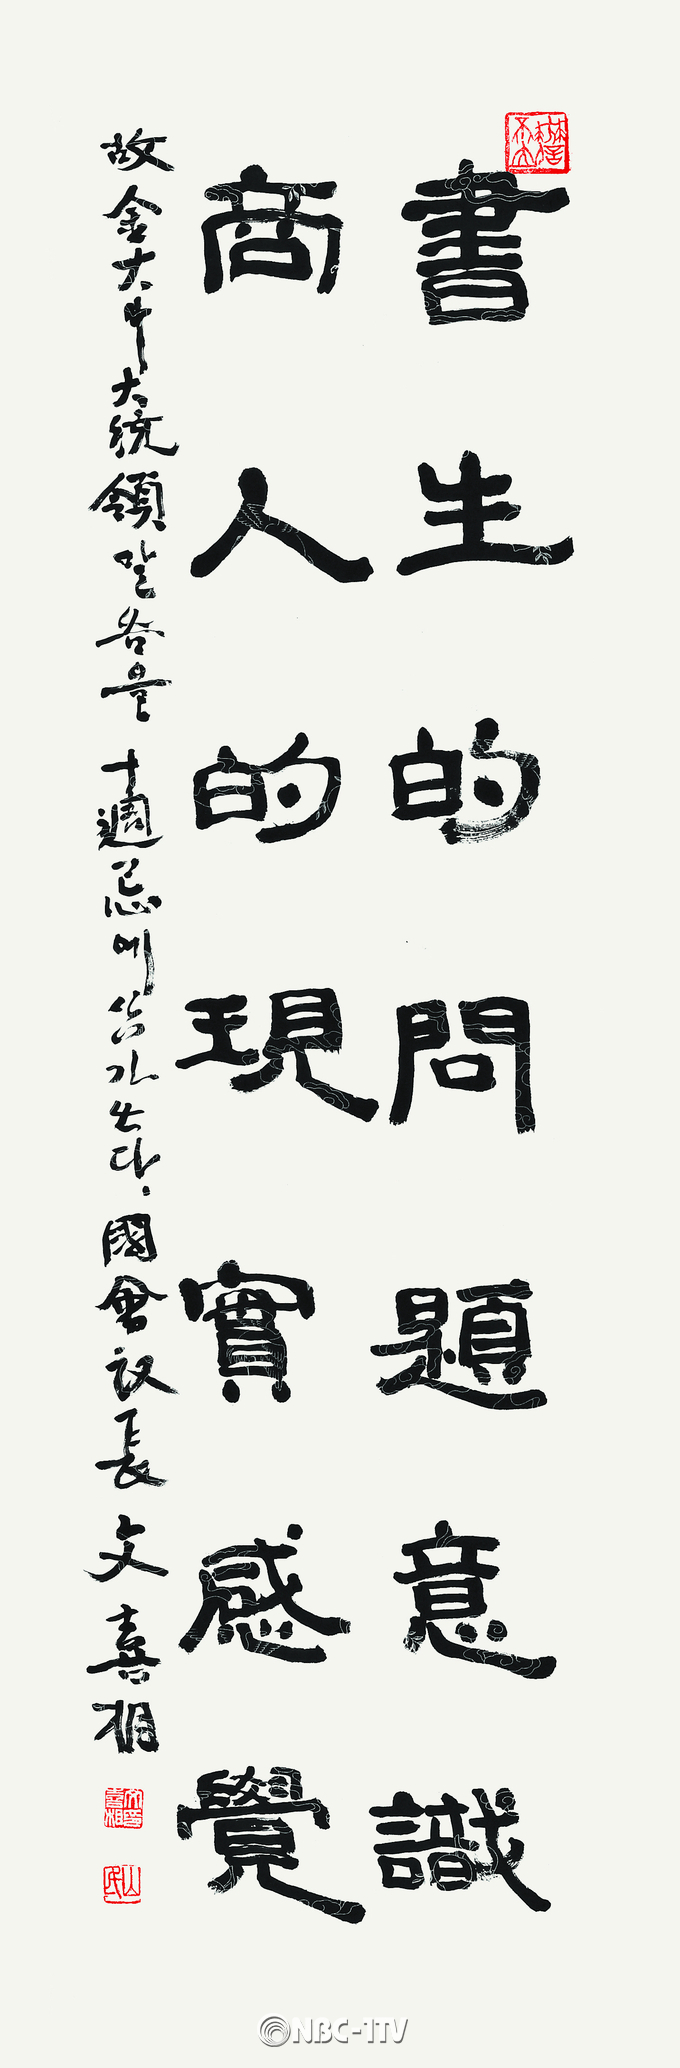 無信不立
書生的問題意識
商人的現實感覺
故金大中大統領 말씀을 十週忌에 삼가 쓰다. 國會議長 文 喜相
NBC-1TV